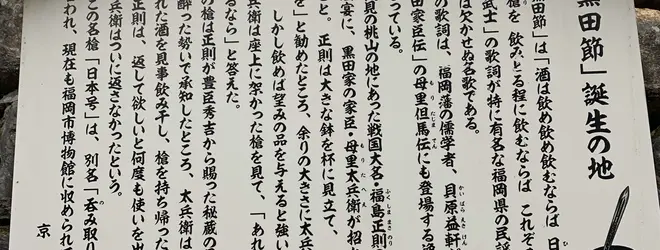 黒田節」誕生の地
田節」は「酒は飲め飲め飲むならば 日
槍を 飲みとる程に飲むならば これぞ
武士」の歌詞が特に有名な福岡県の民謡
は欠かせぬ名歌である。
の歌詞は、福岡藩の儒学者、貝原益軒
かいばらえきけん
田家臣伝」の母里但馬伝にも登場する逸
もりたじまでん
っている。
見の桃山の地にあった戦国大名・福島正則
ふくしままさのり
宴に、黒田家の家臣・母里太兵衛が招か
もりたへえ
こと。正則は大きな鉢を杯に見立て、
を」と勧めたところ、余りの大きさに太兵
しかし飲めば望みの品を与えると強い
兵衛は座上に架かった槍を見て、「あれ
るなら」と答えた。
の槍は正則が豊臣秀吉から賜った秘蔵の
酔った勢いで承知したところ、太兵衛は
れた酒を見事飲み干し、槍を持ち帰った
正則は、返して欲しいと何度も使いを出
兵衛はついに返さなかったという。
この名槍「日本号」は、別名「呑み取り
われ、現在も福岡市博物館に収められて
京